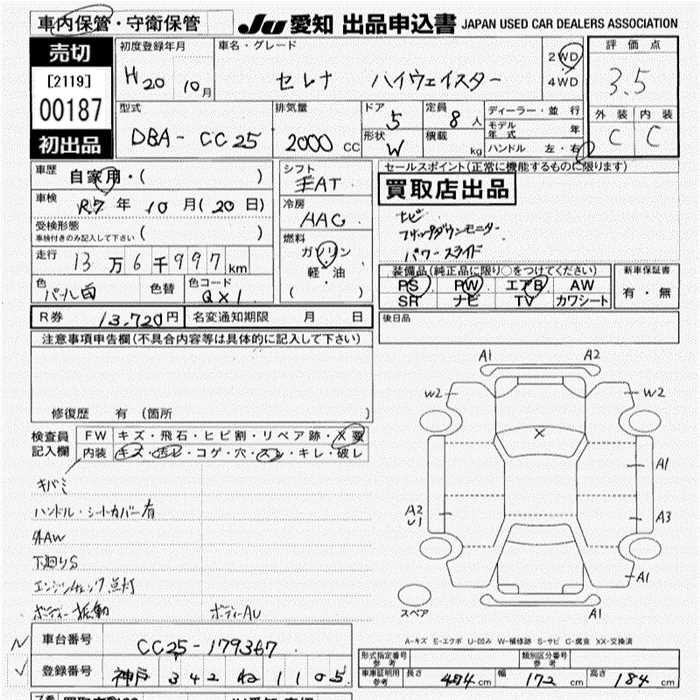 車内保管・守衛保管 JU 愛知 出品申込書 JAPAN USED CAR DEALERS ASSOCIATION
売切
[2119]
00187
初出品
初度登録年月 H20 10月
車名・グレード セレナ ハイウェイスター
2WD
4WD
評価点
3.5
外装 内装
C C
型式 DBA-CC25
排気量 2000 CC
ドア 5
形状 W
定員 8人
積載 kg
ディーラー・並行
モデル年式 年
ハンドル 左・右
車歴 自家用・( )
車検 R7年 10月(20日)
受検形態
車検付きのみ記入して下さい ( )
走行 13万6千997km
色 パール白
色替
色コード QX1
シフト
AT
冷房
AAC
燃料
ガソリン
軽・油
( )
セールスポイント(正常に機能するものに限ります)
買取店出品
ナビ
フリップダウンモニター
パワースライド
装備品(純正品に限り○をつけてください)
PS PW エアB AW
SR ナビ TV カワシート
新車保証書
有・無
R券 13,720円 名変通知期限 月 日
後日品
注意事項申告欄(不具合内容等は具体的に記入して下さい)
修復歴 有(箇所 )
検査員
記入欄
FW キズ・飛石・ヒビ割・リペア跡・X要
内装 キズ・汚レ・コゲ・穴・スレ・キレ・破レ
キバミ
ハンドル・シートカバー有
外AW
下廻りS
エンジンチェック点灯
ボディー振動
ボディーAU
A1 A2
W2 W2
X
A1
A2
U1
A3
A1
A1
スペア
A-キズ E-エクボ U-凹み W-補修跡 S-サビ C-腐食 XX-交換済
車台番号 CC25-179367
登録番号 神戸 342 ね 1105
形式指定番号 参考
類別区分番号 参考
車庫証明用 参考 長さ 484cm 幅 172cm 高さ 184cm